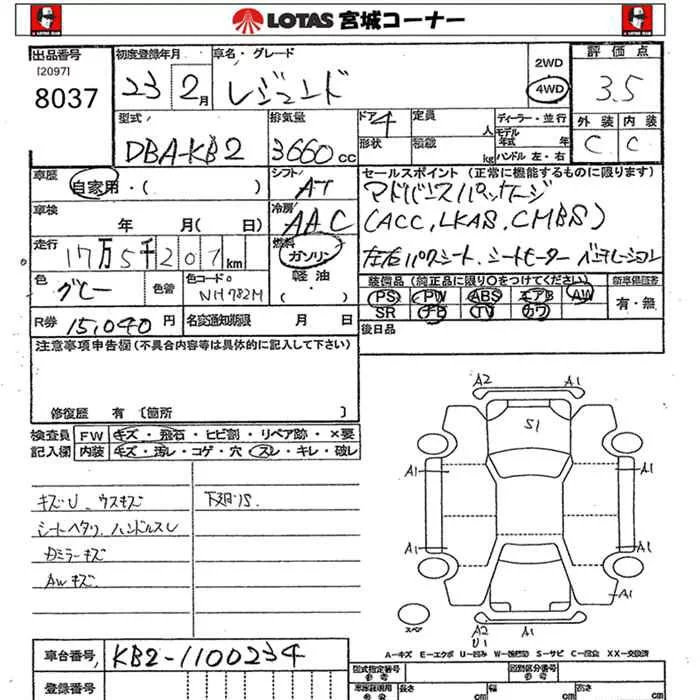 LOTAS 宮城コーナー
出品番号
[2097]
8037
初度登録年月
23 2月
車名・グレード
レジェンド
2WD
4WD
評価点
3.5
外装 内装
C C
型式
DBA-KB2
排気量
3660cc
ドア 4
形状
定員 人
積載 kg
ディーラー・並行
モデル年式 年
ハンドル 左・右
車歴
自家用・( )
シフト
AT
セールスポイント(正常に機能するものに限ります)
(ACC, LKAS, CMBS)
車検
年 月( 日)
冷房
AAC
走行
17万5千201km
燃料
ガソリン
軽油
・( )
色
グレー
色替
色コード
NH782M
装備品(純正品に限り○をつけてください)
PS PW ABS エアB AW
SR TV カワ
有・無
R券 15,040円
名変通知期限 月 日
後日品
注意事項申告欄(不具合内容等は具体的に記入して下さい)
修復歴 有 [箇所 ]
検査員
記入欄
FW キズ・飛石・ヒビ割・リペア跡・×要
内装 キズ・汚レ・コゲ・穴・スレ・キレ・破レ
キズU ウスキズ
シートヘタリ、ハンドルスレ
AWキズ
A2 A1
S1
A1 A1
A1 A1
A1
A2 A1
U1
スペア
A-キズ E-エクボ U-凹み W-補修跡 S-サビ C-腐食 XX-交換済
車台番号 KB2-1100234
登録番号
型式指定番号
参考
類別区分番号
参考
長さ cm
幅 cm
高さ cm